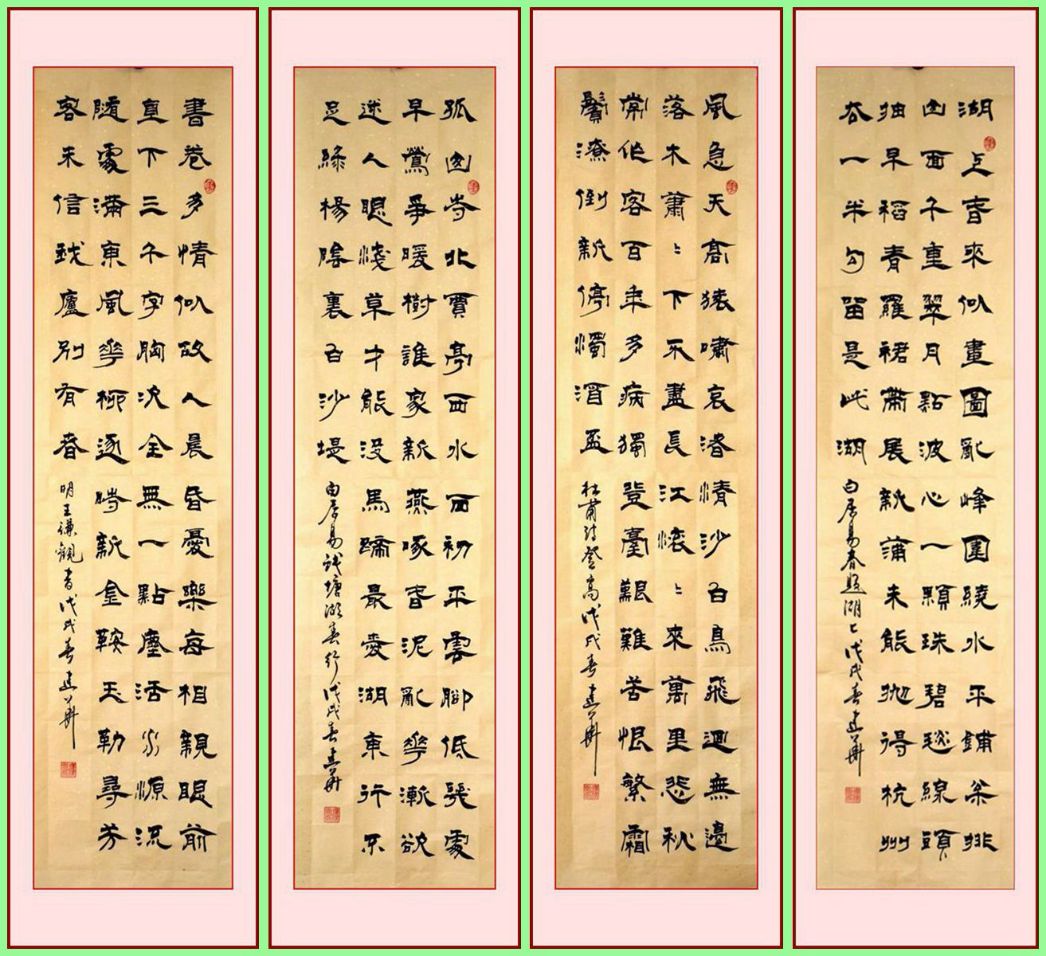 湖上春來似畫圖亂峰圍繞水平鋪松排
山面千重翠月點波心一顆珠碧毯線頭
抽早稻青羅裙帶展新蒲未能拋得杭州
去一半勾留是此湖
白居易春題湖上戊戌春建華
風急天高猿嘯哀渚清沙白鳥飛迴無邊
落木蕭〻下不盡長江滾〻來萬里悲秋
常作客百年多病獨登臺艱難苦恨繁霜
鬢潦倒新停濁酒盃
杜甫詩登高戊戌春建華
孤山寺北賈亭西水面初平雲腳低幾處
早鶯爭暖樹誰家新燕啄春泥亂華漸欲
迷人眼淺草才能沒馬蹄最愛湖東行不
足綠楊陰裏白沙堤
白居易錢塘湖春行戊戌春建華
書卷多情似故人晨昏憂樂每相親眼前
直下三千字胸次全無一點塵活水源流
隨處滿東風華柳逐時新金鞍玉勒尋芳
客未信我廬別有春
明于謙觀書戊戌春建華